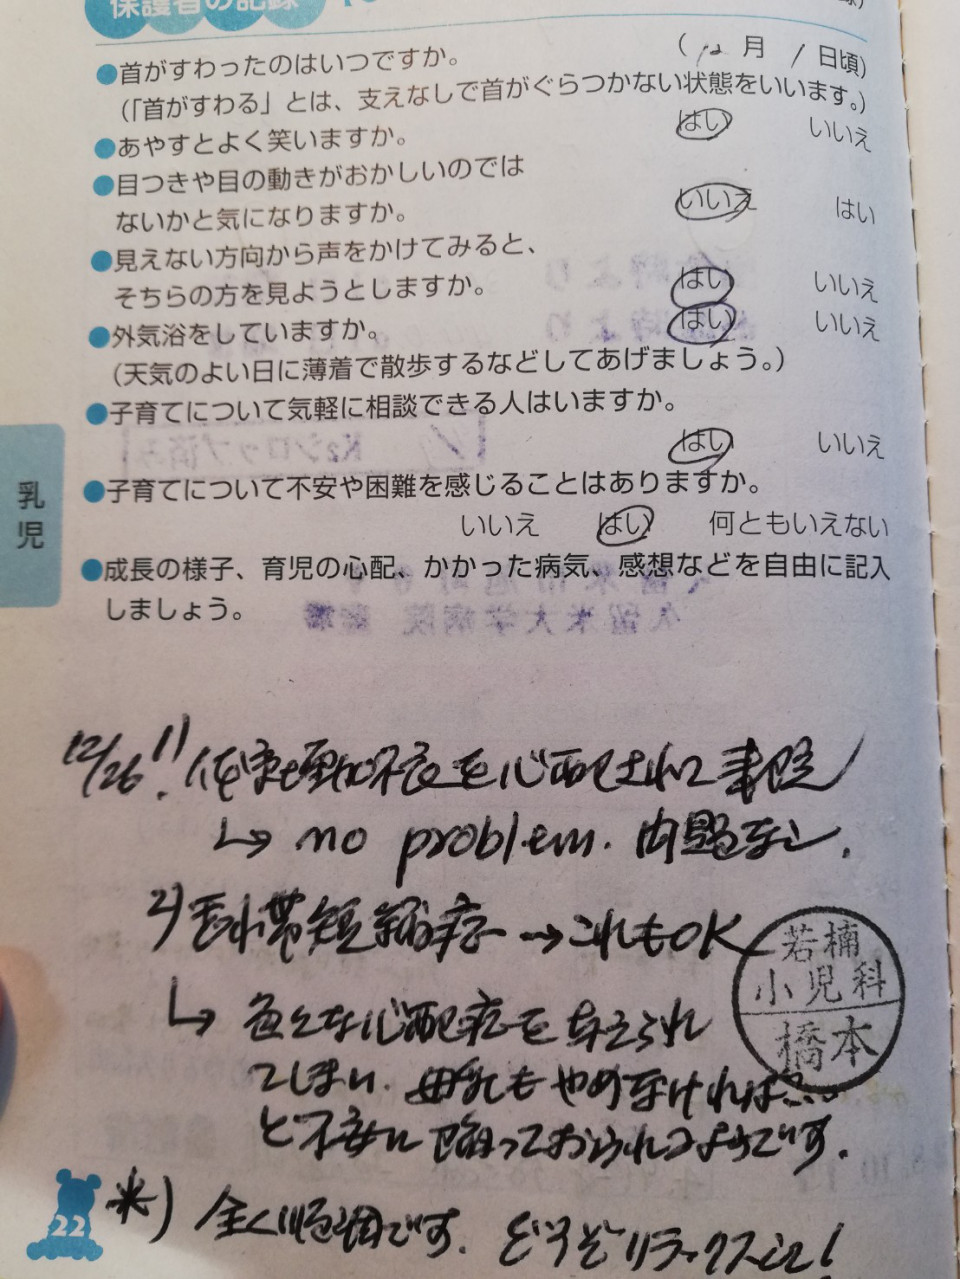 保護者の記録
●首がすわったのはいつですか。 (12月 1日頃)
(「首がすわる」とは、支えなしで首がぐらつかない状態をいいます。)
●あやすとよく笑いますか。 はい いいえ
●目つきや目の動きがおかしいのでは
ないかと気になりますか。 いいえ はい
●見えない方向から声をかけてみると、
そちらの方を見ようとしますか。 はい いいえ
●外気浴をしていますか。 はい いいえ
(天気のよい日に薄着で散歩するなどしてあげましょう。)
●子育てについて気軽に相談できる人はいますか。
はい いいえ
●子育てについて不安や困難を感じることはありますか。
いいえ はい 何ともいえない
●成長の様子、育児の心配、かかった病気、感想などを自由に記入
しましょう。
乳児
12/26. 1) 体重増加不良を心配されて来院
↳ no problem. 問題なし.
2) 舌小帯短縮症 → これもOK
↳ 色々な心配症を与えられ
てしまい. 母乳もやめなければ…
と不安に陥っておられるようです.
若楠
小児科
橋本
※) 全く順調です. どうぞリラックスして!
22